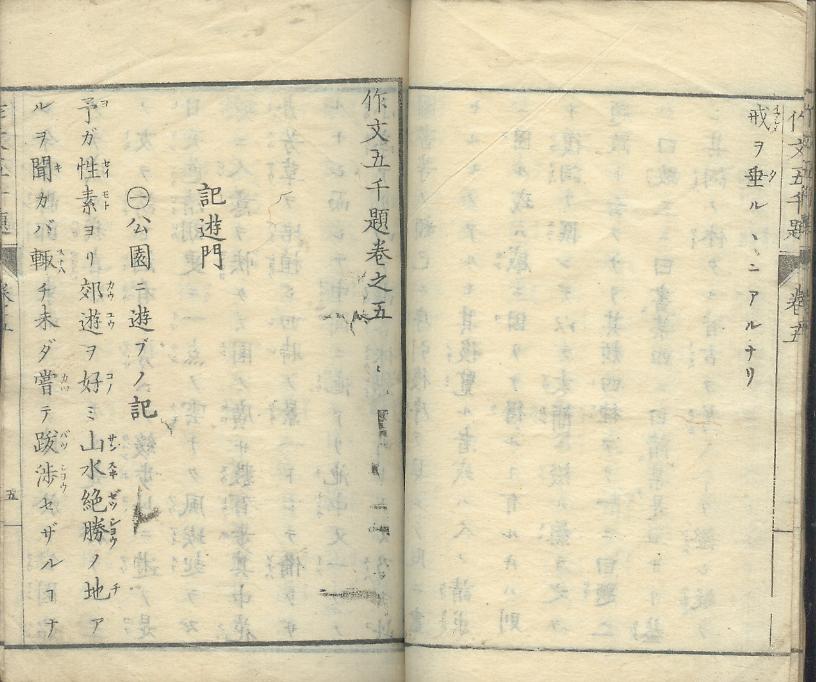 作文五千題 卷五
戒ヲ垂ルヽニアルナリ
作文五千題卷之五
記遊門
㊀公園ニ遊ブノ記
予ガ性素ヨリ郊遊ヲ好ミ山水絶勝ノ地ア
ルヲ聞カバ輙チ未ダ嘗テ跋渉セザルヿナ
五